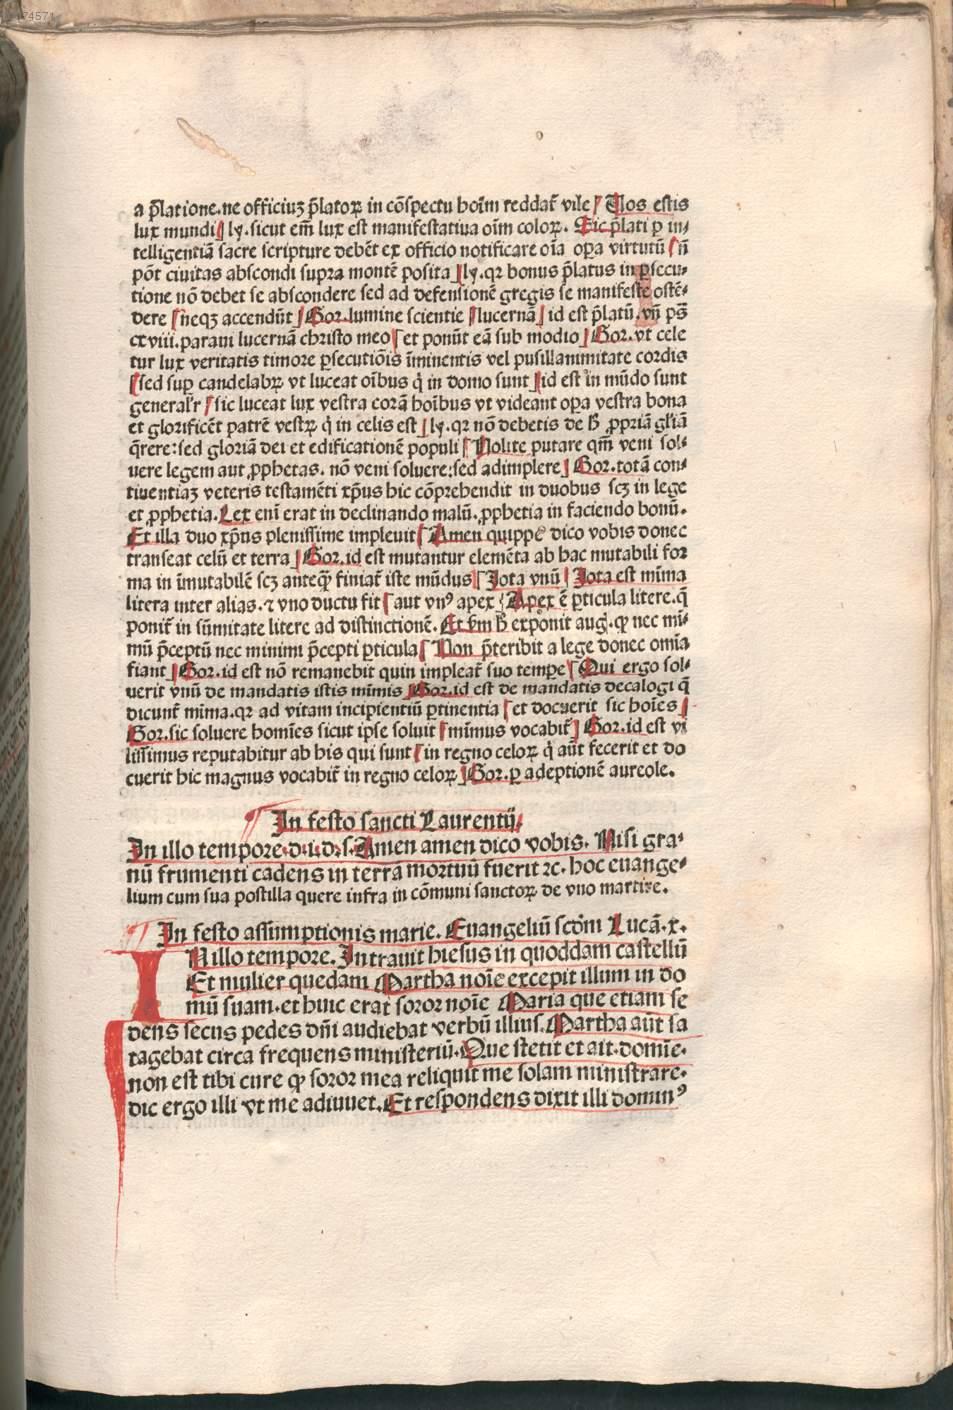 74571
a p̄latione. ne officiuʒ p̄latoꝝ in cōspectu hoīm reddat᷑ vile Uos estis
lux mundi ly. sicut em̄ lux est manifestatiua oīm coloꝝ. Sic p̄lati ꝑ in⸗
telligentiā sacre scripture debēt ex officio notificare oīa oꝑa virtutū n̄
pōt ciuitas abscondi supra montē posita ly. qꝛ bonus p̄latus in ꝑsecu⸗
tione nō debet se abscondere sed ad defensionē gregis se manifeste ostē⸗
dere neqʒ accendūt Gor. lumine scientie lucernā id est p̄latū. vn̄ pš
cxviii. paraui lucernā christo meo et ponūt eā sub modio Gor. vt cele
tur lux veritatis timore ꝑsecutiōis īminentis vel pusillanimitate cordis
sed suꝑ candelabꝝ vt luceat oībus q̇ in domo sunt id est in mūdo sunt
general᷑r sic luceat lux vestra corā hoībus vt videant oꝑa vestra bona
et glorificēt patrē vestꝝ q̇ in celis est ly. qꝛ nō debetis de h̄ ꝓpriā gl'iā
q̄rere: sed gloriā dei et edificationē populi Nolite putare qm̄ veni sol⸗
uere legem aut ꝓphetas. nō veni soluere: sed adimplere Gor. totā con⸗
tinentiaʒ veteris testamēti xp̄us hic cōprehendit in duobus scʒ in lege
et ꝓphetia. Lex enī erat in declinando malū. ꝓphetia in faciendo bonū.
Et illa duo xp̄us plenissime impleuit Amen quippe dico vobis donec
transeat celū et terra Gor. id est mutantur elemēta ab hac mutabili for
ma in īmutabilē scʒ anteqꝫ finiat᷑ iste mūdus Jota vnū Jota est mīma
litera inter alias. ⁊ vno ductu fit aut vnꝰ apex Apex ē ꝑticula litere. q̄
ponit᷑ in sūmitate litere ad distinctionē. Et ẜm h̄ exponit aug̉. ꝙ nec mī⸗
mū p̄ceptū nec minimi p̄cepti ꝑticula Non p̄teribit a lege donec omīa
fiant Gor. id est nō remanebit quin impleat᷑ suo temꝑe Qui ergo sol⸗
uerit vnū de mandatis istis mīmis Gor. id est de mandatis decalogi q̄
dicunt᷑ mīma. qꝛ ad vitam incipientiū ꝑtinentia et docuerit sic hoīes
Gor. sic soluere homīes sicut ipse soluit mīmus vocabit᷑ Gor. id est vi
lissimus reputabitur ab his qui sunt in regno celoꝝ q̇ aūt fecerit et do
cuerit hic magnus vocabit᷑ in regno celoꝝ Gor. ꝑ adeptionē aureole.
In festo sancti Laurentij
In illo tempore. d. i. d. s. Amen amen dico vobis. Nisi gra⸗
nū frumenti cadens in terrā mortuū fuerit ⁊c. hoc euange⸗
lium cum sua postilla quere infra in cōmuni sanctoꝝ de vno martire.
In festo assūmptionis marie. Euangeliū scd̄m Lucā. x.
IN illo tempore. Intrauit hiesus in quoddam castellū
Et mulier quedam Martha noīe excepit illum in do
mū suam. et huic erat soror noīe Maria que etiam se
dens secus pedes dn̄i audiebat verbū illius. Martha aūt sa
tagebat circa frequens ministeriū. Que stetit et ait. domīe.
non est tibi cure ꝙ soror mea reliquit me solam ministrare.
dic ergo illi vt me adiuuet. Et respondens dixit illi dominꝰ